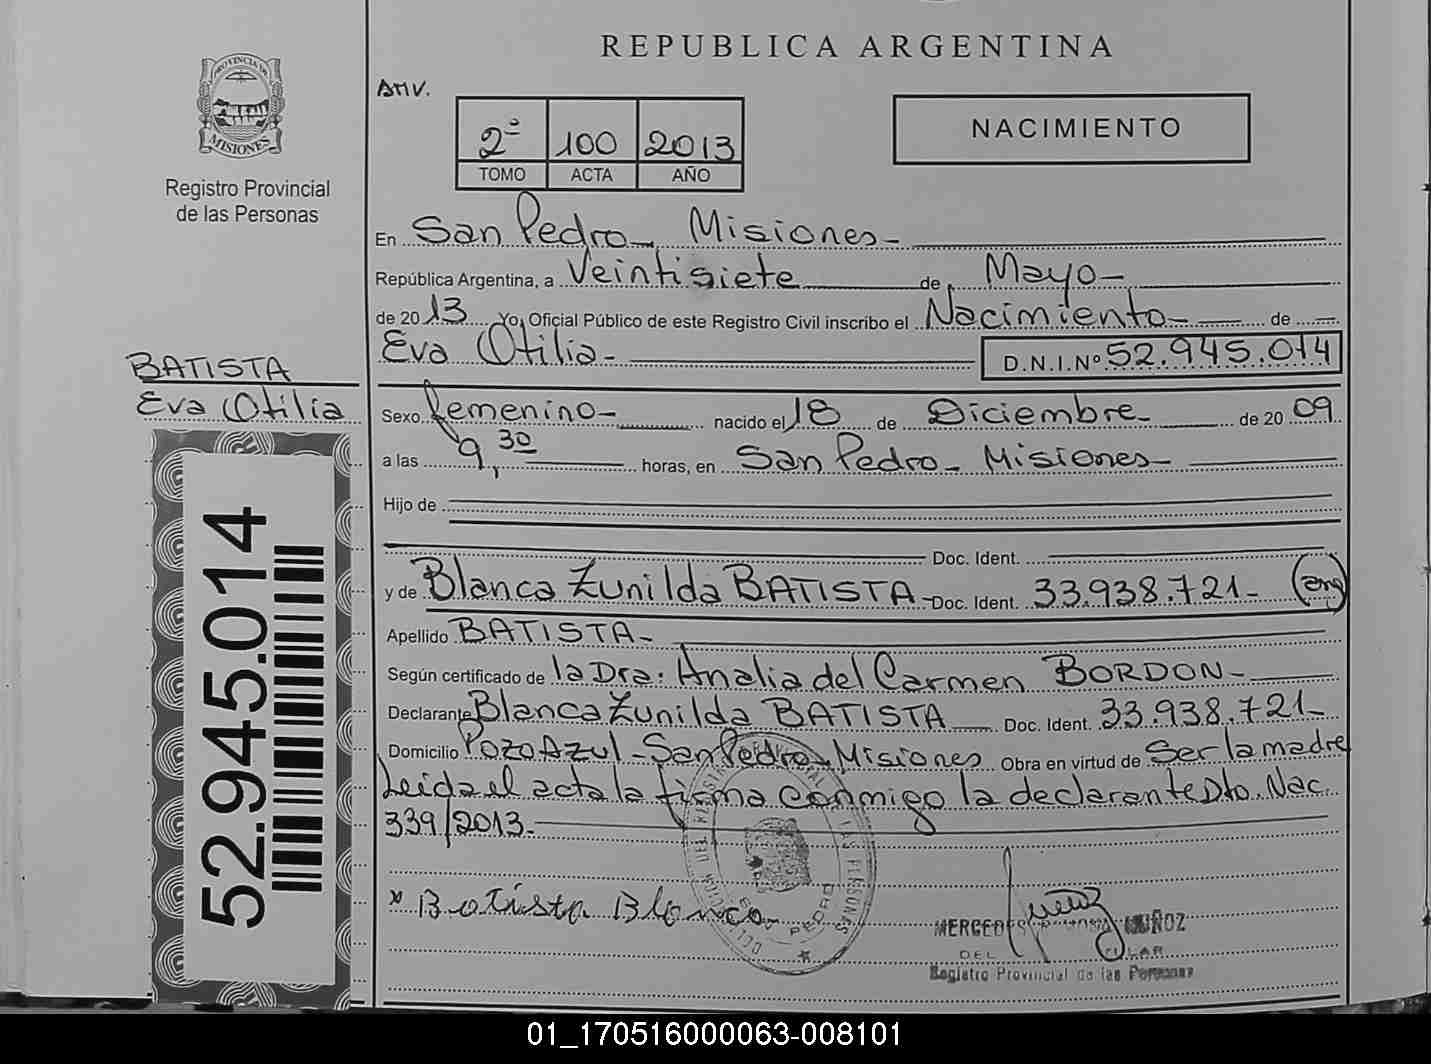 REPUBLICA ARGENTINA
PROVINCIA DE
MISIONES
Registro Provincial
de las Personas
AMV.
2º 100 2013
TOMO ACTA AÑO
NACIMIENTO
En San Pedro - Misiones -
República Argentina, a Veintisiete de Mayo -
de 2013 Yo, Oficial Público de este Registro Civil inscribo el Nacimiento - de
Eva Otilia - D.N.I.Nº 52.945.014
BATISTA
Eva Otilia
52.945.014
Sexo femenino - nacido el 18 de Diciembre - de 20 09
a las 9,30 horas, en San Pedro - Misiones -
Hijo de
Doc. Ident.
y de Blanca Zunilda BATISTA - Doc. Ident. 33.938.721 -
Apellido BATISTA -
Según certificado de la Dra: Analia del Carmen BORDON -
Declarante Blanca Zunilda BATISTA Doc. Ident. 33.938.721 -
Domicilio Pozo Azul - San Pedro - Misiones Obra en virtud de Ser la madre
Leida el acta la firma conmigo la declarante Dto. Nac.
339/2013 -
x Batista Blanca
MERCEDES MUÑOZ
DEL
Registro Provincial de las Personas
SAN PEDRO
01_170516000063-008101